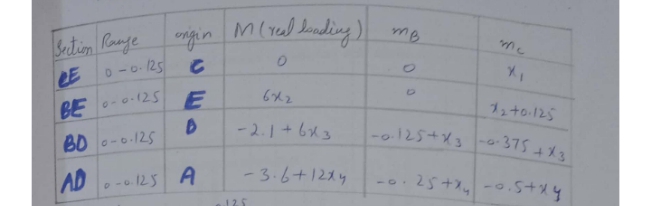 Section Range origin M (real loading) mB mC
CE 0-0.125 C 0 0 x1
BE 0-0.125 E 6x2 0 x2+0.125
BD 0-0.125 D -2.1+6x3 -0.125+x3 -0.375+x3
AD 0-0.125 A -3.6+12x4 -0.25+x4 -0.5+x4
.125